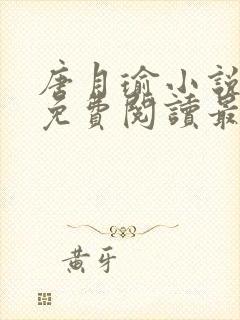 唐月瑜小說
免費閱讀最
黃牙